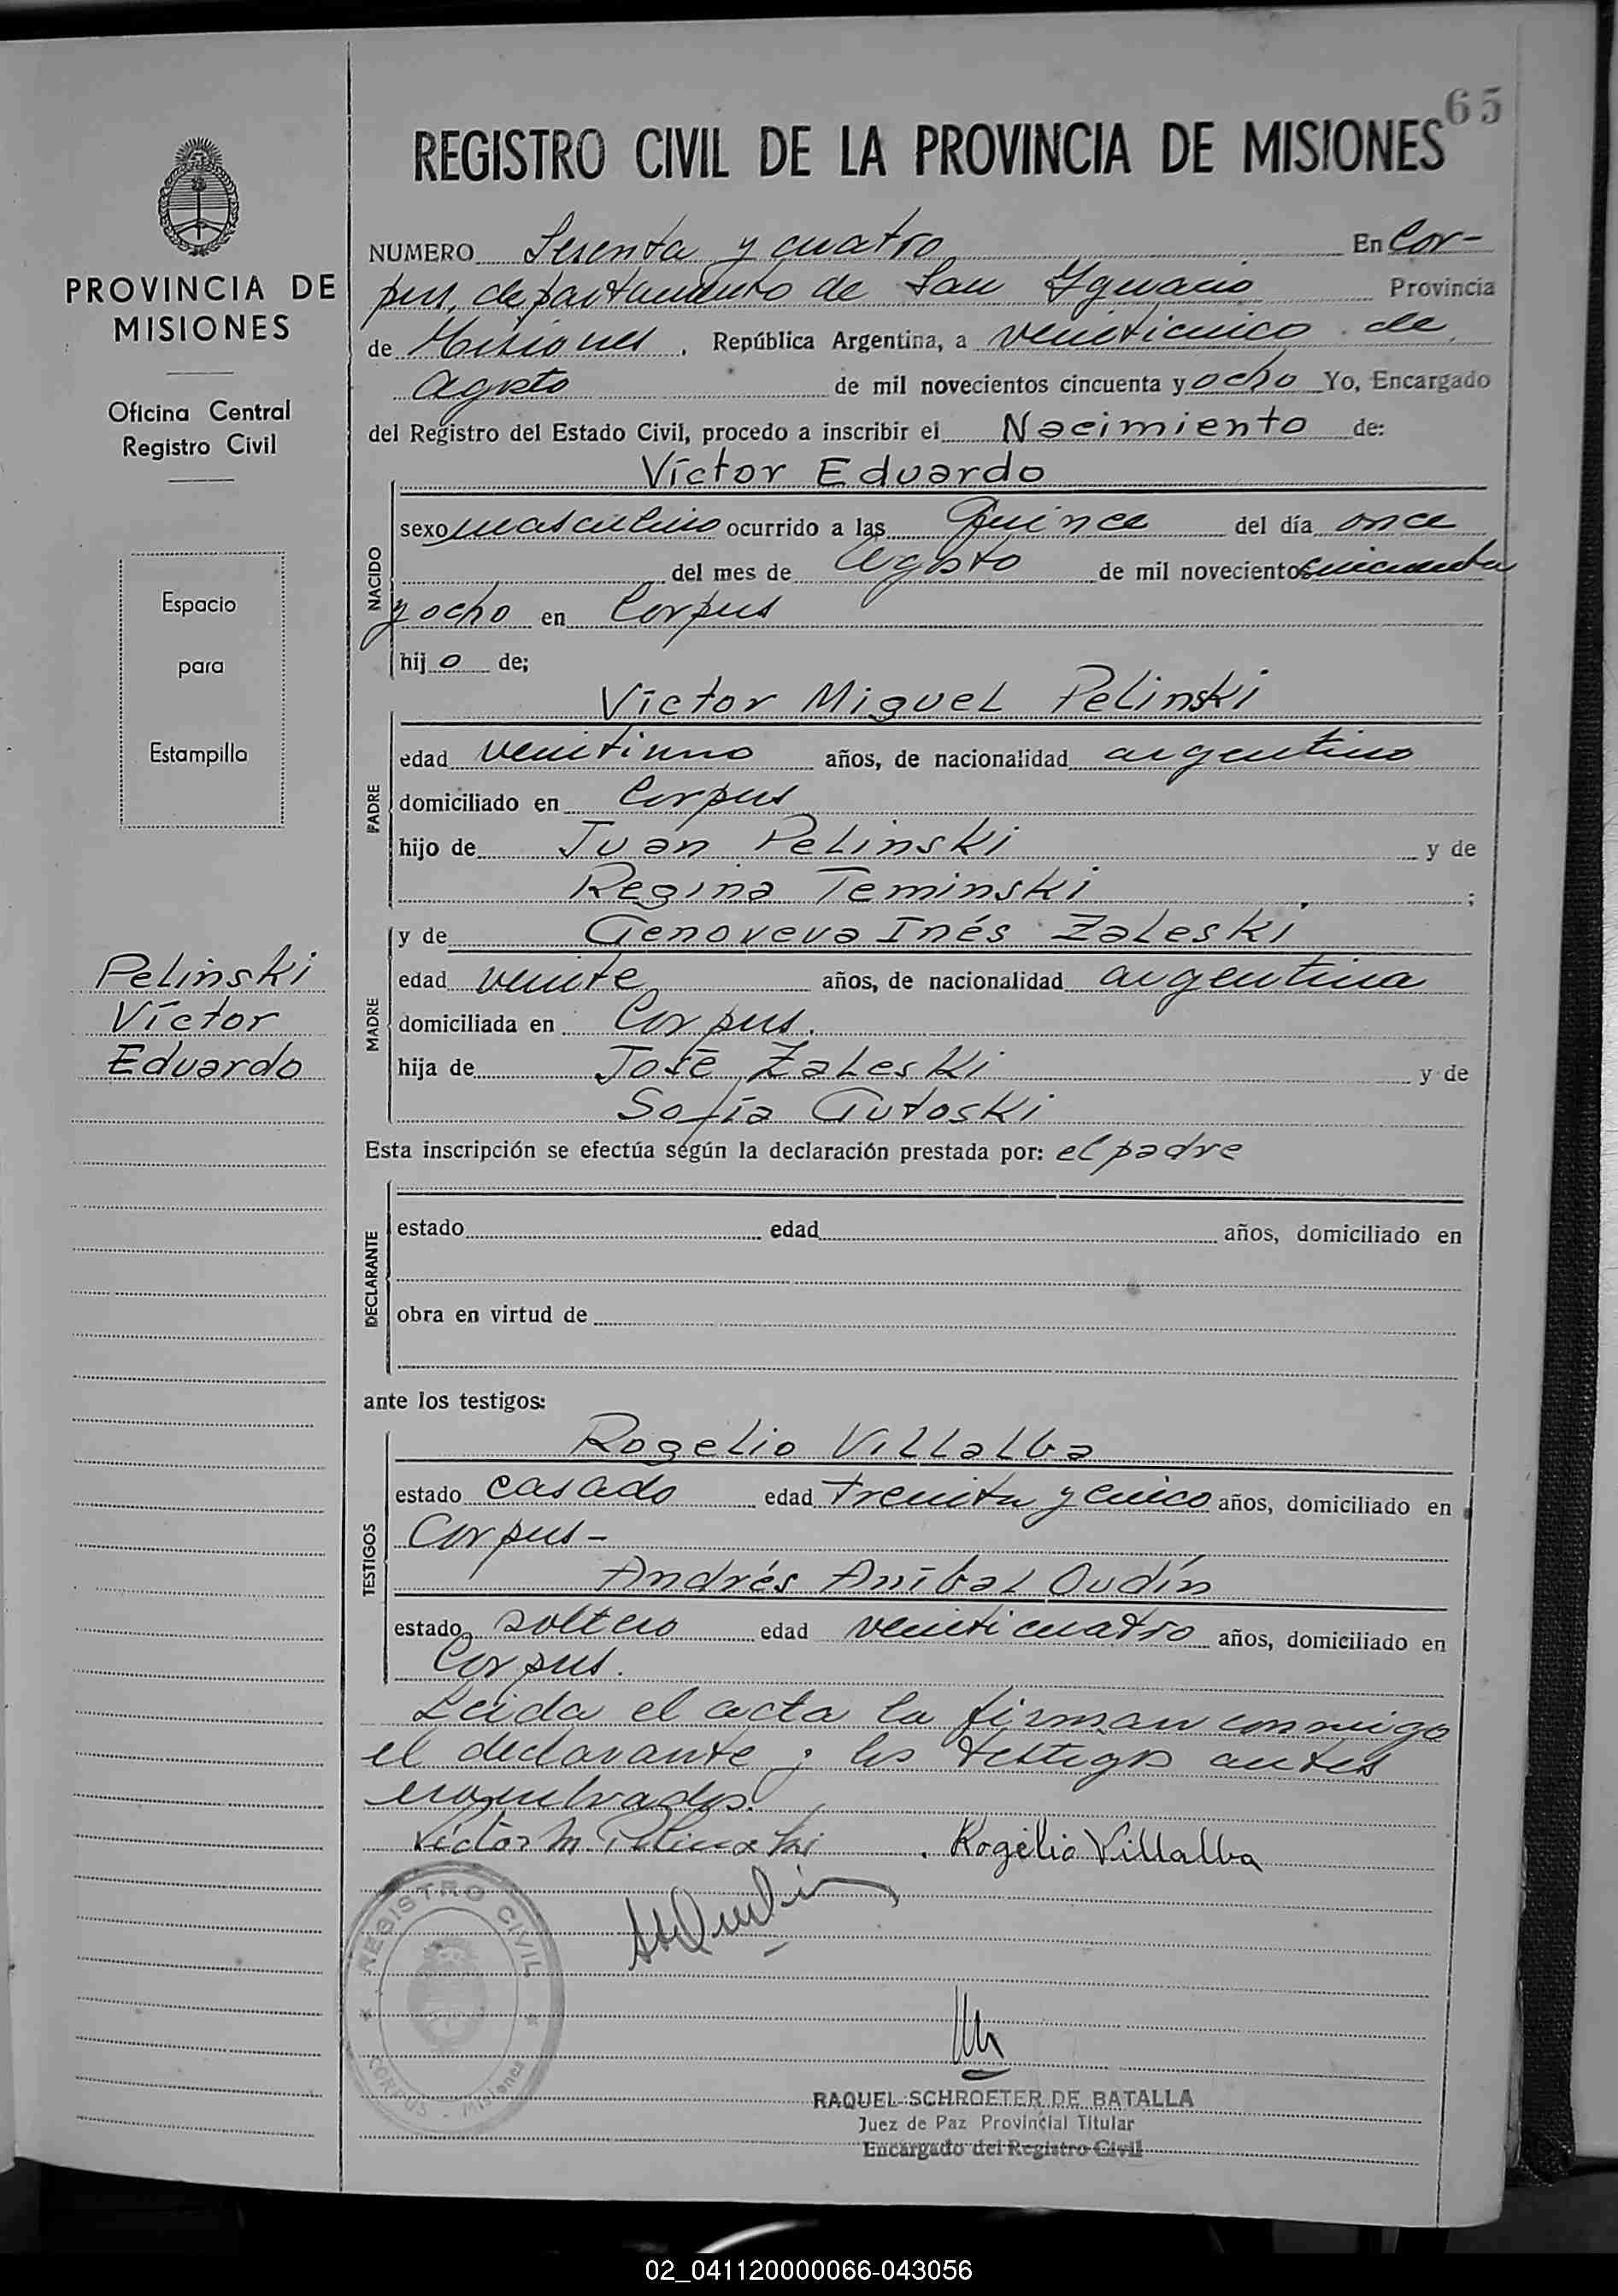 65
REGISTRO CIVIL DE LA PROVINCIA DE MISIONES
NUMERO Sesenta y cuatro En Cor-
pus, departamento de San Ygnacio Provincia
de Misiones, República Argentina, a veinticinco de
agosto de mil novecientos cincuenta y ocho Yo, Encargado
del Registro del Estado Civil, procedo a inscribir el Nacimiento de:
Víctor Eduardo
NACIDO
sexo masculino ocurrido a las Quince del día once
del mes de Agosto de mil novecientos cincuenta
y ocho en Corpus
hijo de;
Víctor Miguel Pelinski
PADRE
edad veintiuno años, de nacionalidad argentino
domiciliado en Corpus
hijo de Juan Pelinski y de
Regina Teminski ;
MADRE
y de Genoveva Inés Zaleski
edad veinte años, de nacionalidad argentina
domiciliada en Corpus.
hija de José Zaleski y de
Sofía Gutoski
Esta inscripción se efectúa según la declaración prestada por: el padre
DECLARANTE
estado edad años, domiciliado en
obra en virtud de
ante los testigos:
TESTIGOS
Rogelio Villalba
estado casado edad treinta y cinco años, domiciliado en
Corpus-
Andrés Aníbal Oudín
estado soltero edad veinticuatro años, domiciliado en
Corpus.
Leida el acta la firman conmigo
el declarante y los testigos antes
nombrados.
Víctor M. Pelinski Rogelio Villalba
REGISTRO CIVIL
CORPUS - Misiones
RAQUEL SCHROETER DE BATALLA
Juez de Paz Provincial Titular
Encargado del Registro Civil
PROVINCIA DE
MISIONES
Oficina Central
Registro Civil
Espacio
para
Estampilla
Pelinski
Víctor
Eduardo
02_041120000066-043056